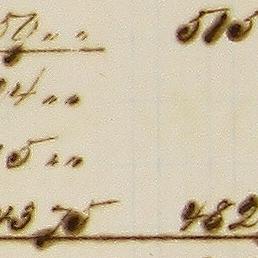 50 „ „ 515
4 „ „
5 „ „
43 75 482